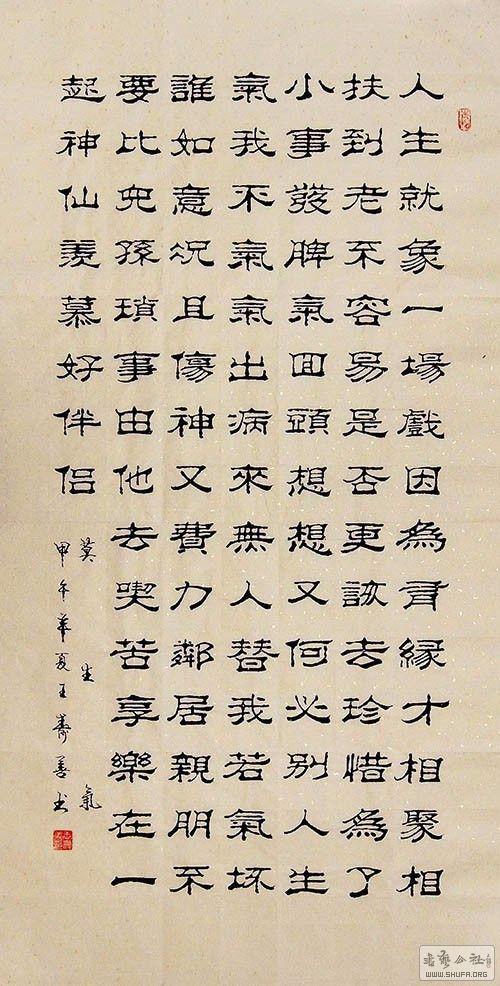 人生就象一場戲因為有緣才相聚相
扶到老不容易是否更該去珍惜為了
小事發脾氣回頭想想又何必別人生
氣我不氣氣出病來無人替我若氣坏
誰如意况且傷神又費力鄰居親朋不
要比兒孫瑣事由他去喫苦享樂在一
起神仙羨慕好伴侶
莫生氣
甲午年夏王壽善书
书艺公社
WWW.SHUFA.ORG